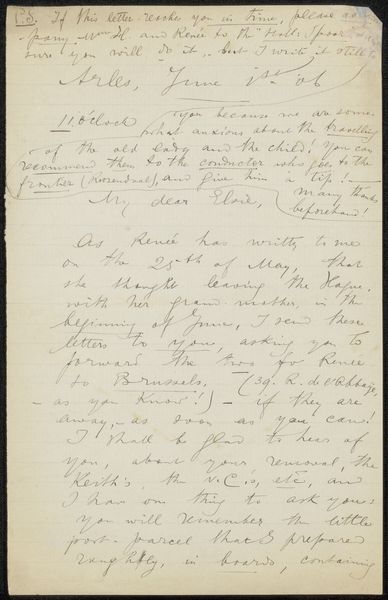 P.S. If this letter reaches you in time, please
pany Mme H. and Renée to the "Holl: Spoor"
sure you will do it.. but I write it still to
Arles, June 1st. 06
11 o'clock you because we are some-
what anxious about the travelling
of the old lady and the child! you can
recommend them to the conductor who goes to the
frontier (Rosendaal), and give him a tip! —
many thanks
beforehand!
My dear Elsie,
As Renée has written to me
on the 25th of May, that
she thought leaving the Hague,
with her grand-mother, in the
beginning of June, I send these
letters to you, asking you to
forward the two for Renée
to Brussels, (39. R. de l'Abbaye,
— as you know!) — if they are
away,— as soon as you can!
I shall be glad to hear of
you, about your removal, the
Keith's, the v.C.'s, etc, and
I have one thing to ask you:
you will remember the little
post-parcel that I prepared
roughly, in boards, containing